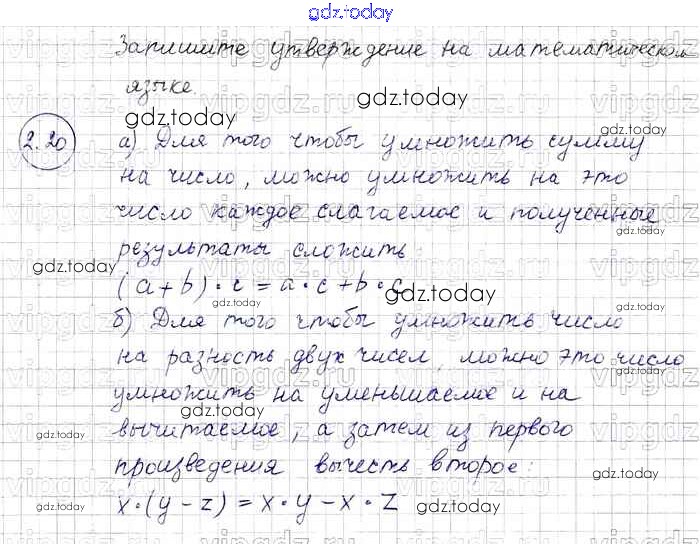 gdz.today
Запишите утверждение на математическом
языке.
gdz.today
gdz.today
2.20
gdz.today
а) Для того чтобы умножить сумму
на число, можно умножить на это
число каждое слагаемое и полученные
gdz.today
gdz.today
результаты сложить
gdz.today
(a+b)·c=a·c+b·c
gdz.today
gdz.today
б) Для того чтобы умножить число
на разность двух чисел, можно это число
gdz.today
умножить на уменьшаемое и на
gdz.today
вычитаемое, а затем из первого
gdz.today
произведения вычесть второе:
gdz.today
x·(y-z)=x·y-x·z
gdz.today
gdz.today